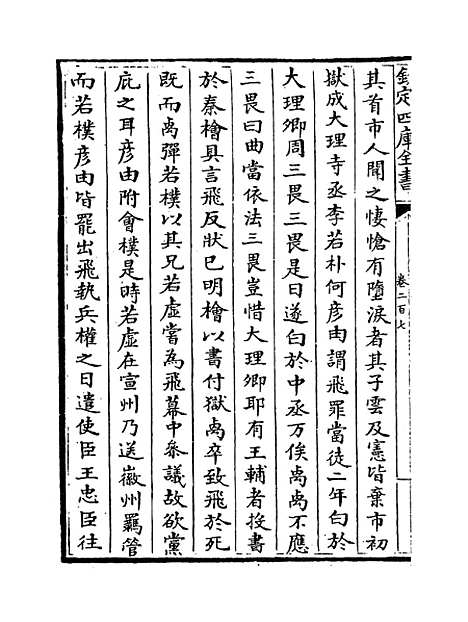 欽定四庫全書
卷二百七
其首市人聞之悽愴有墮淚者其子雲及憲皆棄市初
獄成大理寺丞李若朴何彦由謂飛罪當徒二年白於
大理卿周三畏三畏是日遂白於中丞万俟卨卨不應
三畏曰曲當依法三畏豈惜大理卿耶有王輔者投書
於秦檜具言飛反狀已明檜以書付獄卨卒致飛於死
既而卨彈若樸以其兄若虛嘗為飛幕中叅議故欲黨
庇之耳彦由附會樸是時若虛在宣州乃送徽州羈管
而若樸彦由皆罷出飛執兵權之日遣使臣王忠臣往